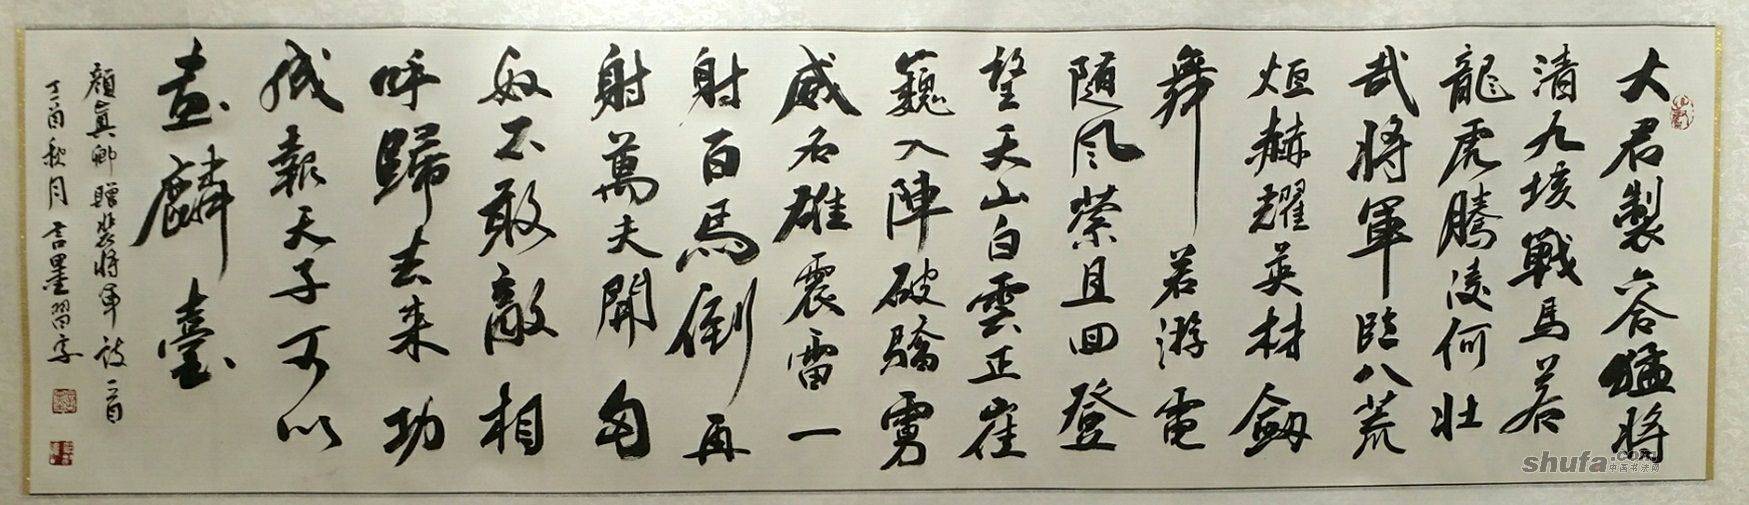 大君製六合猛將
清九垓戰馬若
龍虎騰淩何壯
哉將軍臨八荒
烜赫耀英材劒
舞若游電
隨風縈且回登
望天山白雲正崔
巍入陣破驕虜
威名雄震雷一
射百馬倒再
射萬夫開匈
奴不敢敵相
呼歸去来功
成報天子可以
画麟臺
顔真卿贈裴將軍詩一首
丁酉秋月言墨習字
shufa.com
中国书法网